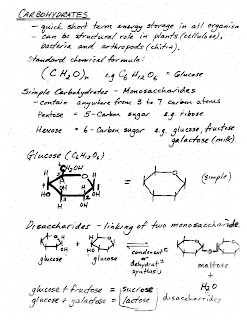 CARBOHYDRATES
- quick short term energy storage in all organism
- can be structural role in plants (cellulose),
bacteria and arthropods (chitin).
Standard chemical formula:
(CH₂O)n e.g C₆H₁₂O₆ = Glucose
Simple Carbohydrates - Monosaccharides
- contain anywhere from 3 to 7 carbon atoms
Pentose = 5-Carbon sugar e.g. ribose
Hexose = 6-Carbon sugar e.g. glucose, fructose
galactose (milk).
Glucose (C₆H₁₂O₆)
CH₂OH
= (simple)
Disaccharides - linking of two monosaccharide
glucose + glucose condensat or dehydrat synthesis maltose
+
H₂O
glucose + fructose = sucrose
glucose + galactose = lactose disaccharides